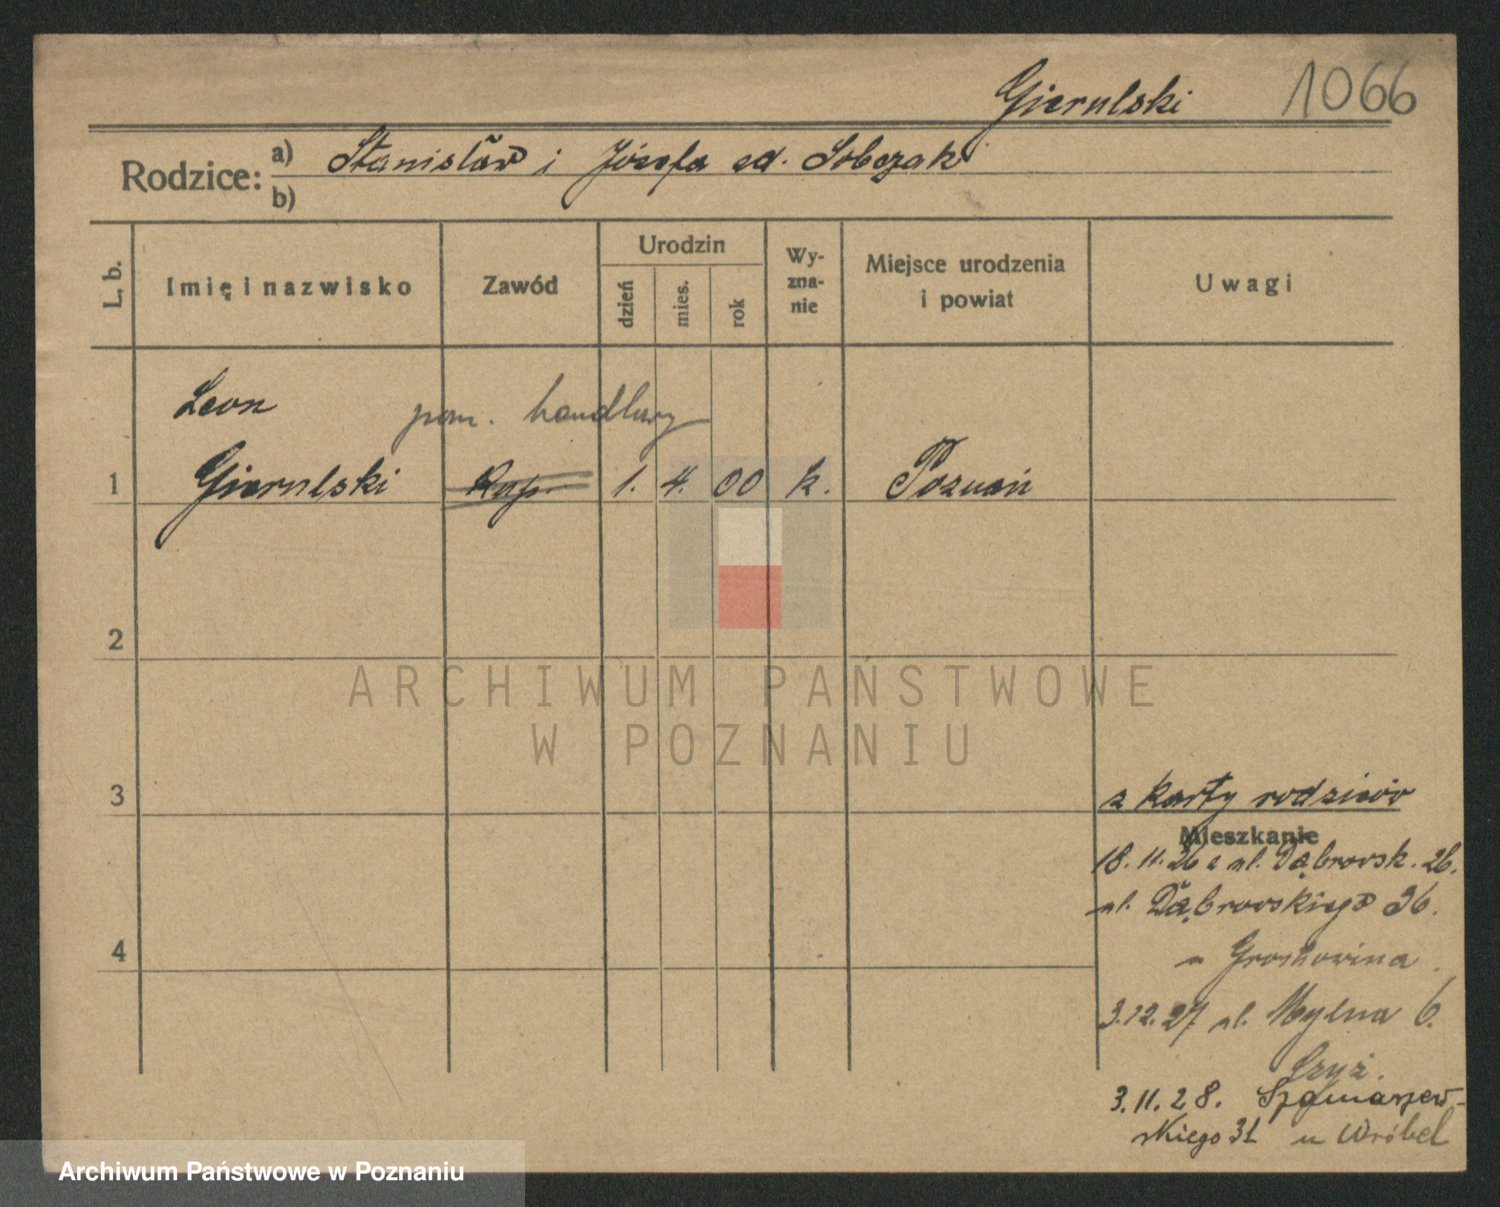 Gierulski 1066
Rodzice: a) Stanisław i Józefa zd. Sobczak
b)
L. b.
Imię i nazwisko
Zawód
Urodzin
dzień
mies.
rok
Wy-
zna-
nie
Miejsce urodzenia
i powiat
Uwagi
Leon pom. handlowy
1 Gierulski Kup. 1. 4. 00 k. Poznań
2
ARCHIWUM PAŃSTWOWE
W POZNANIU
3
z karty rodziców
Mieszkanie
18.11.26 z ul. Dąbrowsk. 26.
ul. Dąbrowskiego 36.
4
u
3.12.27 ul. Mylna 6.
3.11.28. Szamarzew-
skiego 31 u Wróbel
Archiwum Państwowe w Poznaniu